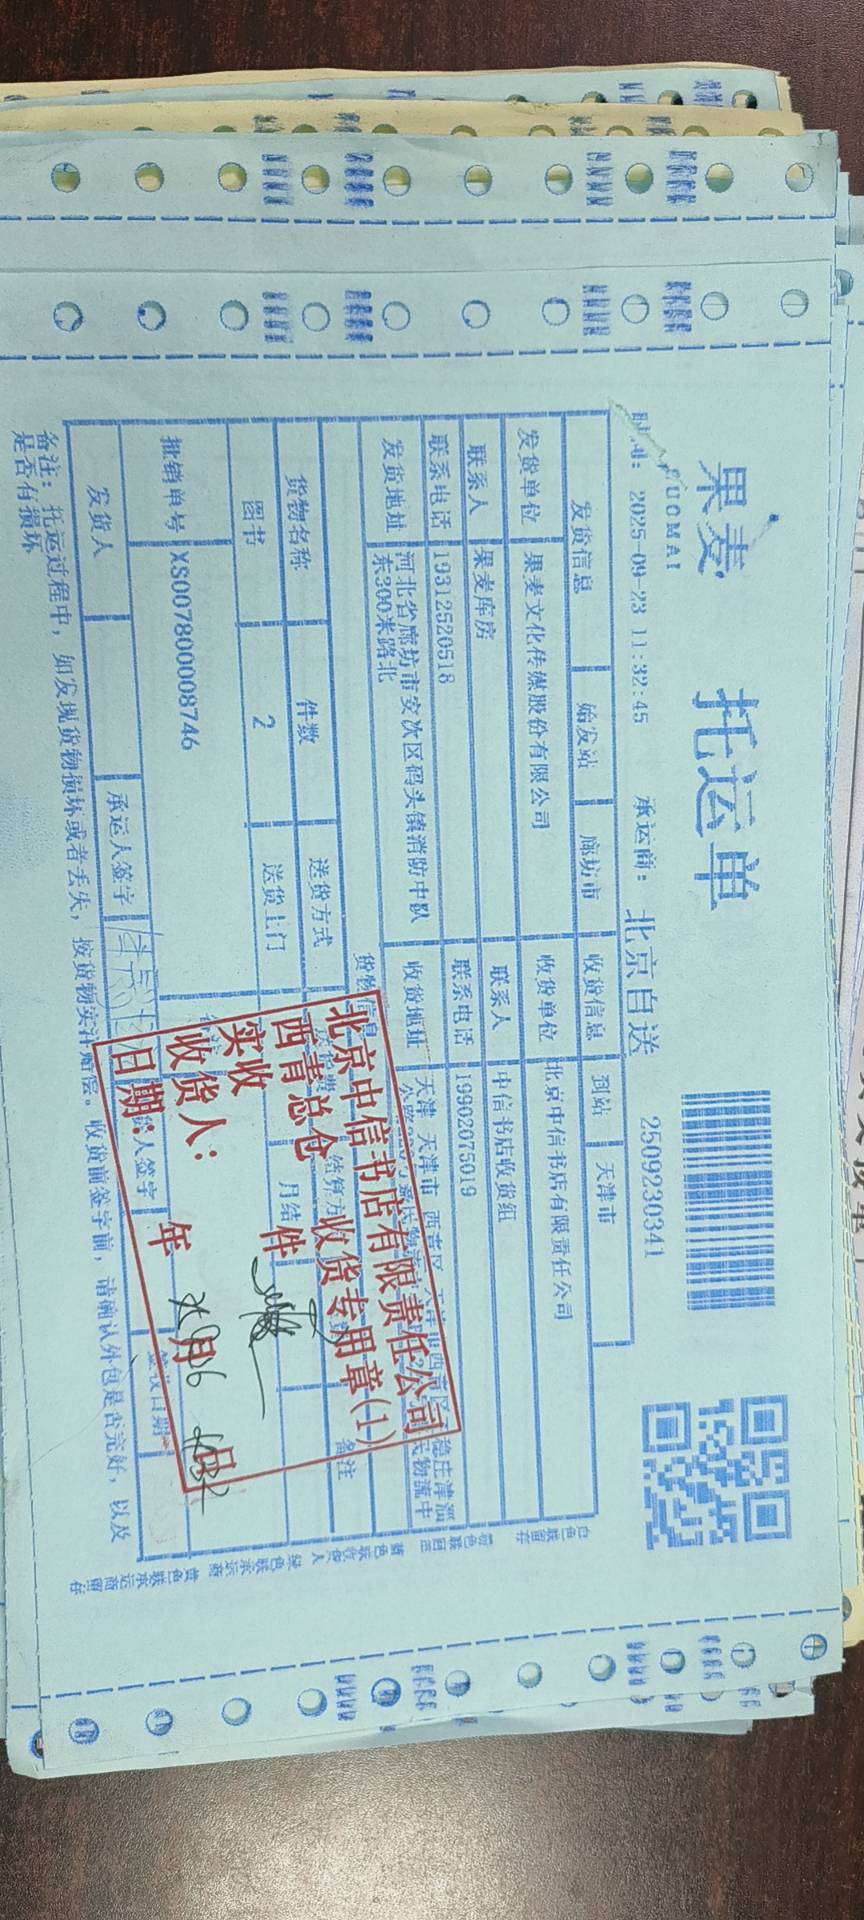 果麦 托运单
GUOMAI
2025-09-23 11:32:45 承运商: 北京自送 2509230341
发货信息 始发站 廊坊市 收货信息 到站 天津市
发货单位 果麦文化传媒股份有限公司 收货单位 北京中信书店有限责任公司
联系人 果麦库房 联系人 中信书店收货组
联系电话 19312520518 联系电话 19902075019
发货地址 河北省廊坊市安次区码头镇消防中队东300米路北 收货地址 天津 天津市 西青区
货物信息
货物名称 件数 送货方式 备注
图书 2 送货上门 月结
批销单号 XS007800008746
发货人 承运人签字
备注: 托运过程中, 如发现货物损坏或者丢失, 按货物实计赔偿。收货前签字前, 请确认外包是否完好, 以及
是否有损坏
白色联留存 粉色联回签 蓝色联收货人 绿色联承运商 黄色联承运商留存
北京中信书店有限责任公司
西青总仓 收货专用章(1)
实收 件
收货人:
日期: 年 月 日